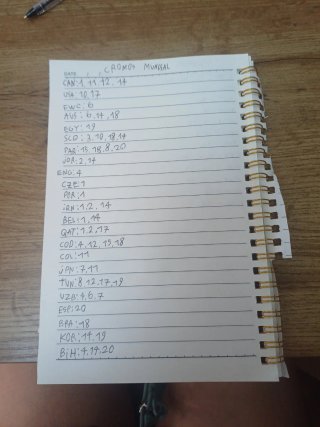 CROMOS MUNDIAL
CAN: 1, 11, 12, 14
USA: 10, 17
EWC: 6
AUS: 6, 14, 18
EGY: 19
SCO: 3, 10, 18, 14
PAR: 15, 18, 8, 20
JOR: 2, 14
ENG: 4
CZE: 1
POR: 1
IRN: 1, 2, 14
BEL: 1, 14
QAT: 1, 2, 17
COD: 4, 12, 15, 18
COL: 11
JPN: 7, 11
TUN: 8, 12, 17, 19
UZB: 4, 6, 7
ESP: 20
BRA: 18
KOR: 14, 19
BIH: 4, 19, 20